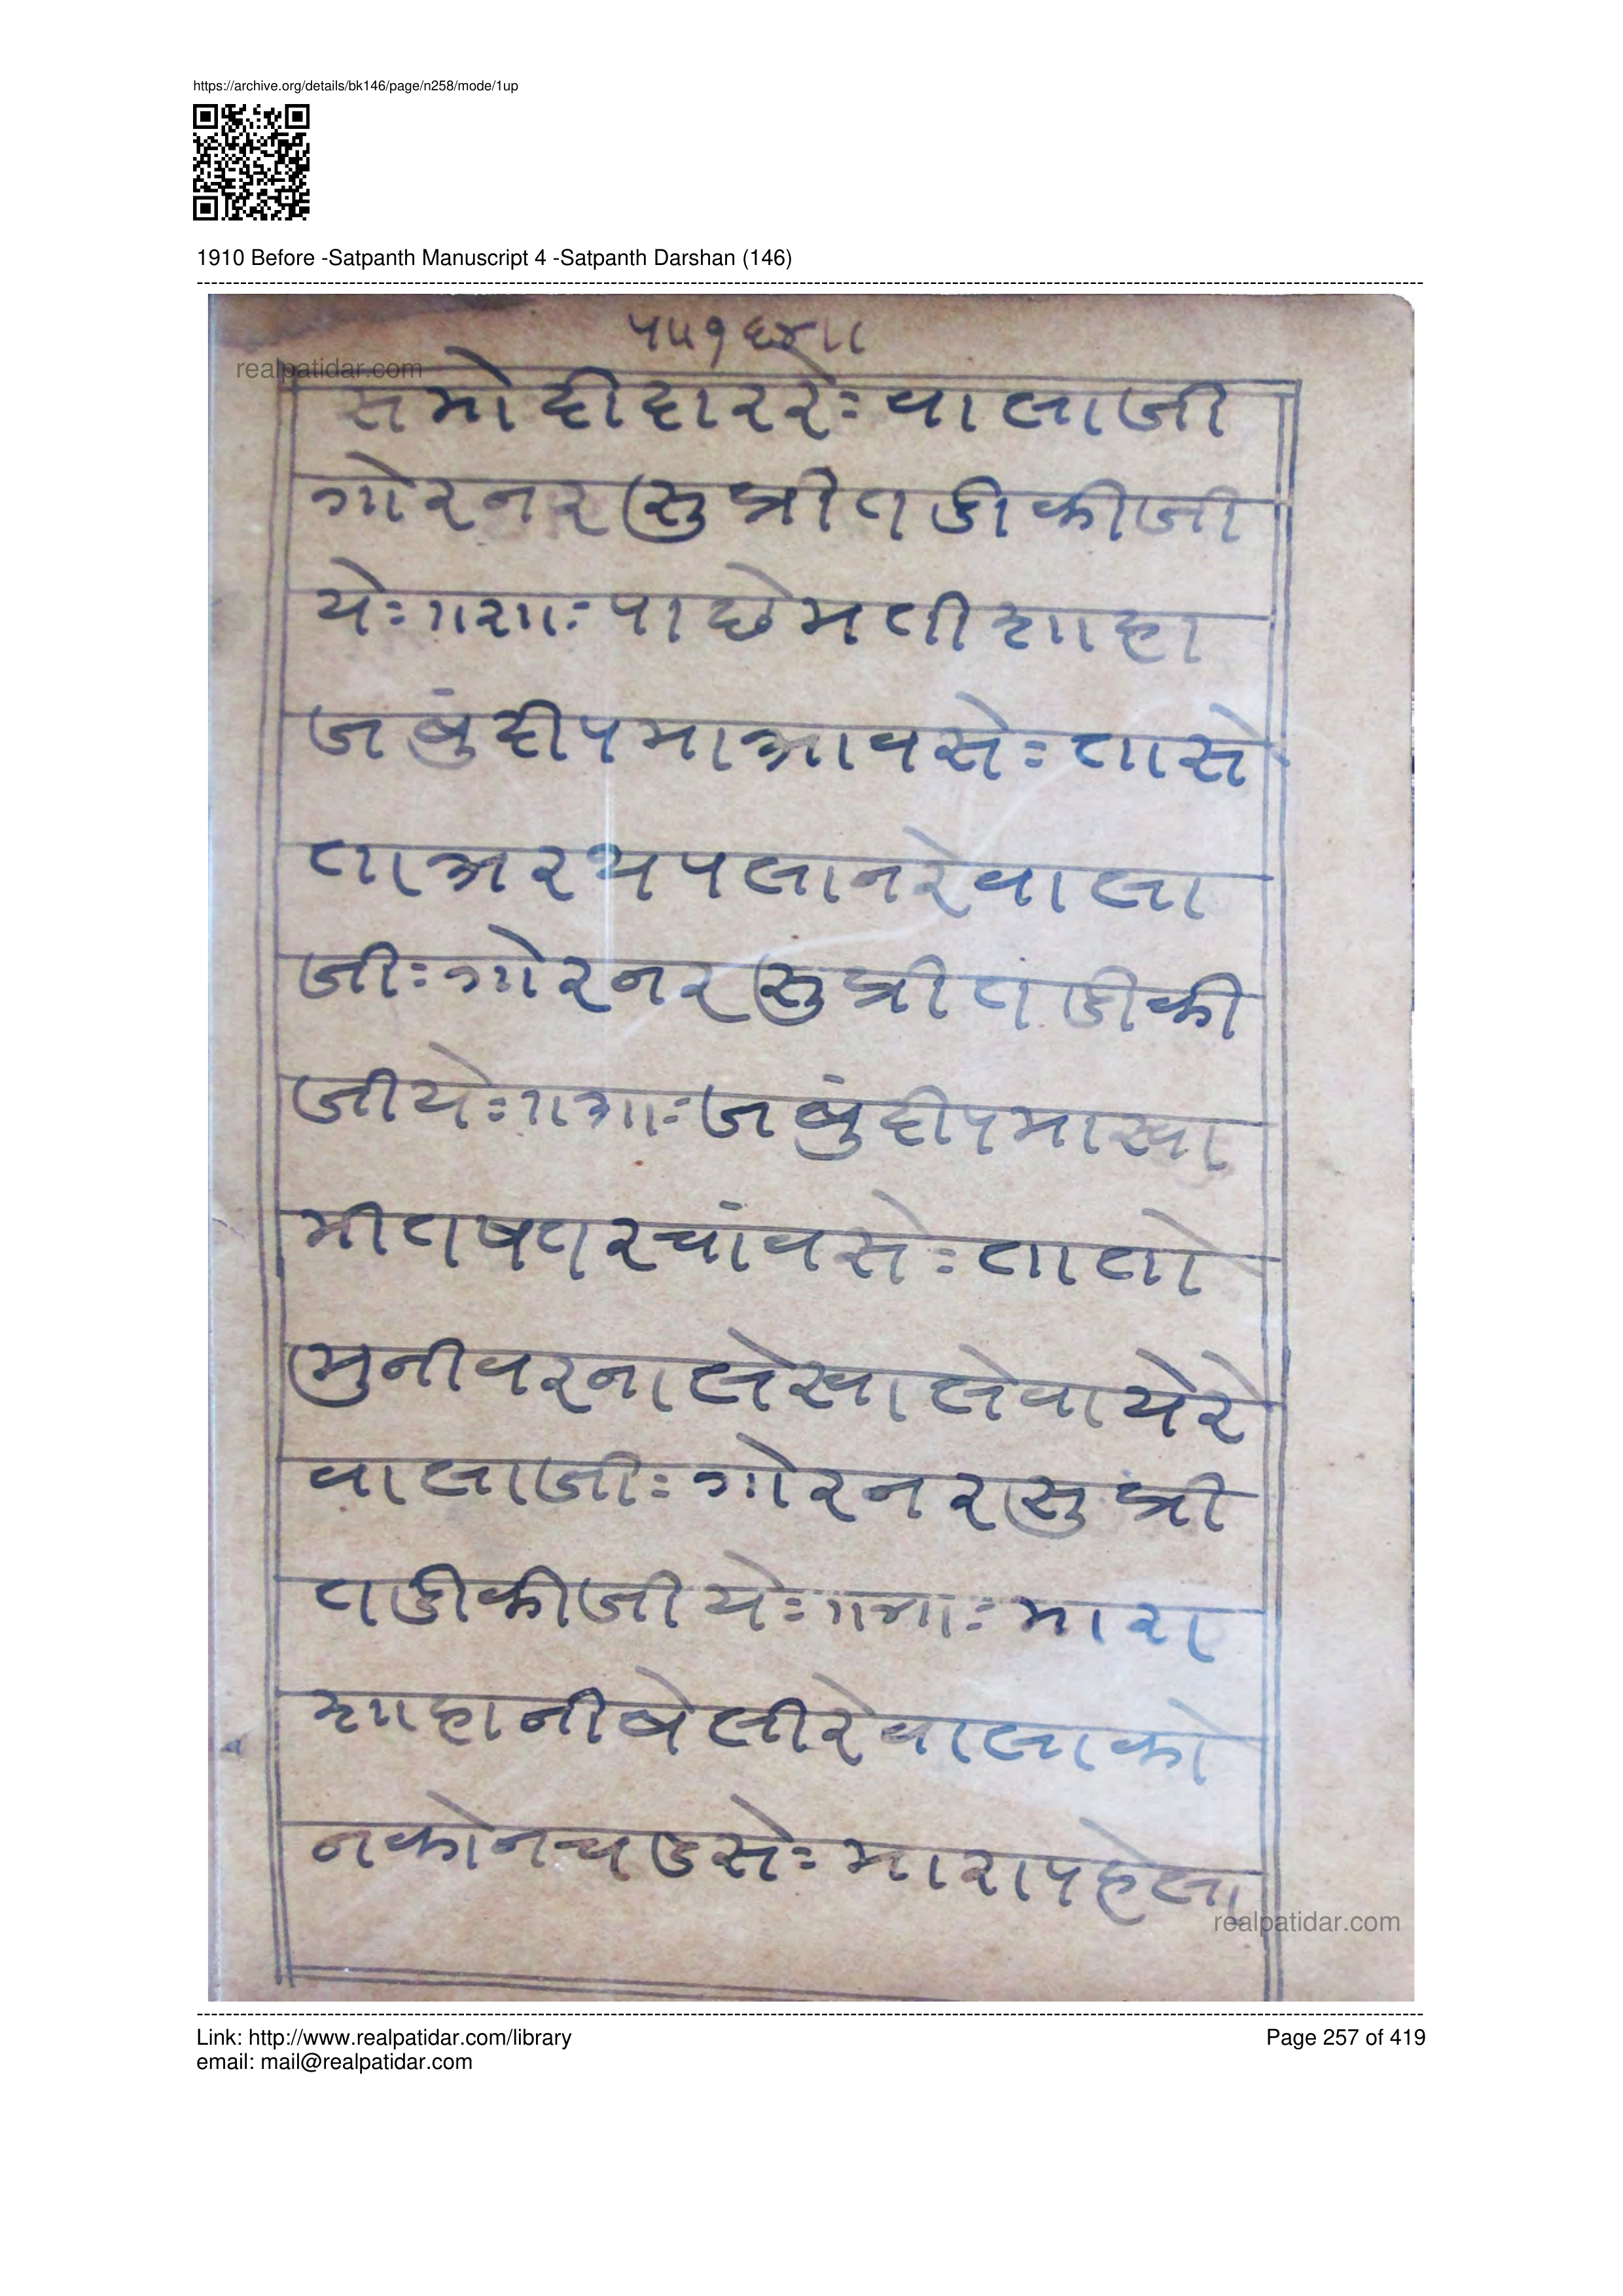 https://archive.org/details/bk146/page/n258/mode/1up
1910 Before -Satpanth Manuscript 4 -Satpanth Darshan (146)
realpatidar.com
समो दीदार रेः वालाजी
गोर नर सु प्रीत डी कीजी
येः ॥२॥ः पाछे मती शाहा
जबुं दीप मा आवसेः ता से
ता अरथ पलान रे वाला
जीः गोर नर सु प्रीत डी की
जीयेः ॥३॥ः जबुं दीप मा स्वा
मी तषत रचांवसेः ता तो
मुनीवर ना लेखा लेवाये रे
वालाजीः गोर नर सु प्री
त डी कीजीयेः ॥४॥ः मारा
शाहा नी बेली रे वाला को
न कोन चडसेः मारा पहेला
realpatidar.com
Link: http://www.realpatidar.com/library
email: mail@realpatidar.com
Page 257 of 419